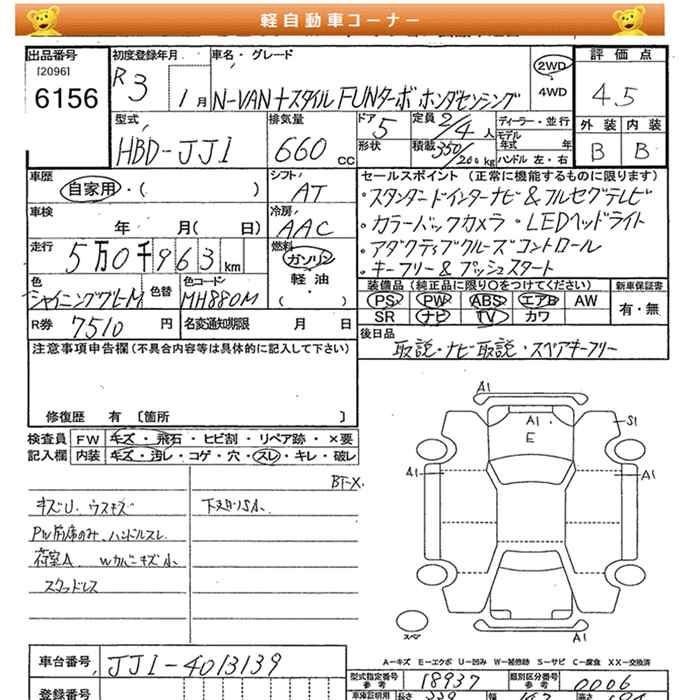 軽自動車コーナー
出品番号 初度登録年月 車名・グレード 評価点
[2096]
6156 R3 1月 N-VAN+スタイル FUNターボ ホンダセンシング 2WD 4WD 4.5
型式 排気量 ドア 定員 ディーラー・並行 外装 内装
HBD-JJ1 660 CC 5 2/4人 モデル年式 年 B B
形状 積載 350/200kg ハンドル 左・右
車歴 シフト セールスポイント (正常に機能するものに限ります)
自家用・( ) AT ・スタンダードインターナビ&フルセグテレビ
車検 冷房 ・カラーバックカメラ ・LEDヘッドライト
年 月( 日) AAC ・アダクティブクルーズコントロール
走行 燃料 ・キーフリー&プッシュスタート
5万0千963km ガソリン
軽油
( )
色 色替 色コード 装備品 (純正品に限り○をつけてください) 新車保証書
シャイニンググレーM MH880M PS PW ABS エアB AW 有・無
R券 7510円 名変通知期限 月 日 SR ナビ TV カワ
後日品
取説・ナビ取説・スペアキーフリー
注意事項申告欄 (不具合内容等は具体的に記入して下さい)
修復歴 有 [箇所 ]
検査員 FW キズ・飛石・ヒビ割・リペア跡・×要
記入欄 内装 キズ・汚レ・コゲ・穴・スレ・キレ・破レ
BT-X
キズU、ウスキズ 下まわりSA、
PW前席のみ、ハンドルスレ
荷室A Wカバーキズ小
スタッドレス
A1
A1
E
S1
A1
A1
A1
スペア
A-キズ E-エクボ U-凹み W-補修跡 S-サビ C-腐食 XX-交換済
車台番号 JJ1-4013139
型式指定番号 参考 18937 類別区分番号 参考 0006
登録番号
車庫証明用 参考 長さ 339 幅 高さ